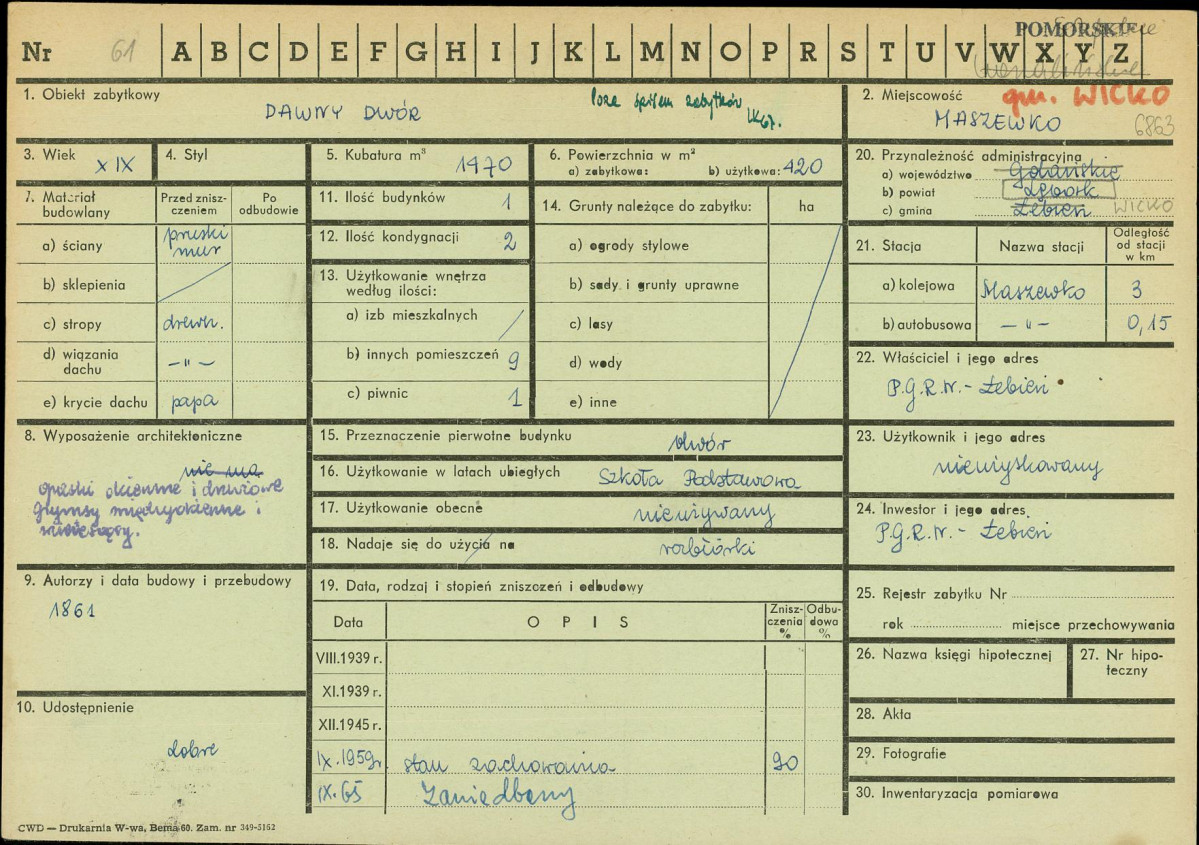 POMORSKIE
Nr 61 A B C D E F G H I J K L M N O P R S T U V W X Y Z
1. Obiekt zabytkowy
DAWNY DWÓR
Poza spisem zabytków
2. Miejscowość gm. WICKO
MASZEWKO 6863
3. Wiek XIX
4. Styl
5. Kubatura m³ 1470
6. Powierzchnia w m²
a) zabytkowa: b) użytkowa: 420
20. Przynależność administracyjna
a) województwo Gdańskie
b) powiat Lębork
c) gmina Łebień WICKO
7. Materiał budowlany
Przed zniszczeniem
Po odbudowie
a) ściany pruski mur
b) sklepienia
c) stropy drewn.
d) wiązania dachu — " —
e) krycie dachu papa
11. Ilość budynków 1
12. Ilość kondygnacji 2
13. Użytkowanie wnętrza
według ilości:
a) izb mieszkalnych
b) innych pomieszczeń 9
c) piwnic 1
14. Grunty należące do zabytku: ha
a) ogrody stylowe
b) sady i grunty uprawne
c) lasy
d) wody
e) inne
21. Stacja
Nazwa stacji
Odległość od stacji w km
a) kolejowa Maszewko 3
b) autobusowa — " — 0,15
22. Właściciel i jego adres
P.G.R.N. - Łebień
8. Wyposażenie architektoniczne
nie ma
opaski okienne i drzwiowe
gzymsy międzyokienne i
wieńczący.
15. Przeznaczenie pierwotne budynku dwór
16. Użytkowanie w latach ubiegłych Szkoła Podstawowa
17. Użytkowanie obecne nieużywany
18. Nadaje się do użycia na rozbiórki
23. Użytkownik i jego adres
nieuzyskowany
24. Inwestor i jego adres
P.G.R.N. - Łebień
9. Autorzy i data budowy i przebudowy
1861
19. Data, rodzaj i stopień zniszczeń i odbudowy
Data
O P I S
Zniszczenia %
Odbudowa %
VIII.1939 r.
XI.1939 r.
XII.1945 r.
IX.1959r. stan zachowania 90
IX.65 Zaniedbany
25. Rejestr zabytku Nr
rok miejsce przechowywania
26. Nazwa księgi hipotecznej
27. Nr hipoteczny
10. Udostępnienie
dobre
28. Akta
29. Fotografie
30. Inwentaryzacja pomiarowa
CWD — Drukarnia W-wa, Bema 60. Zam. nr 349-5162